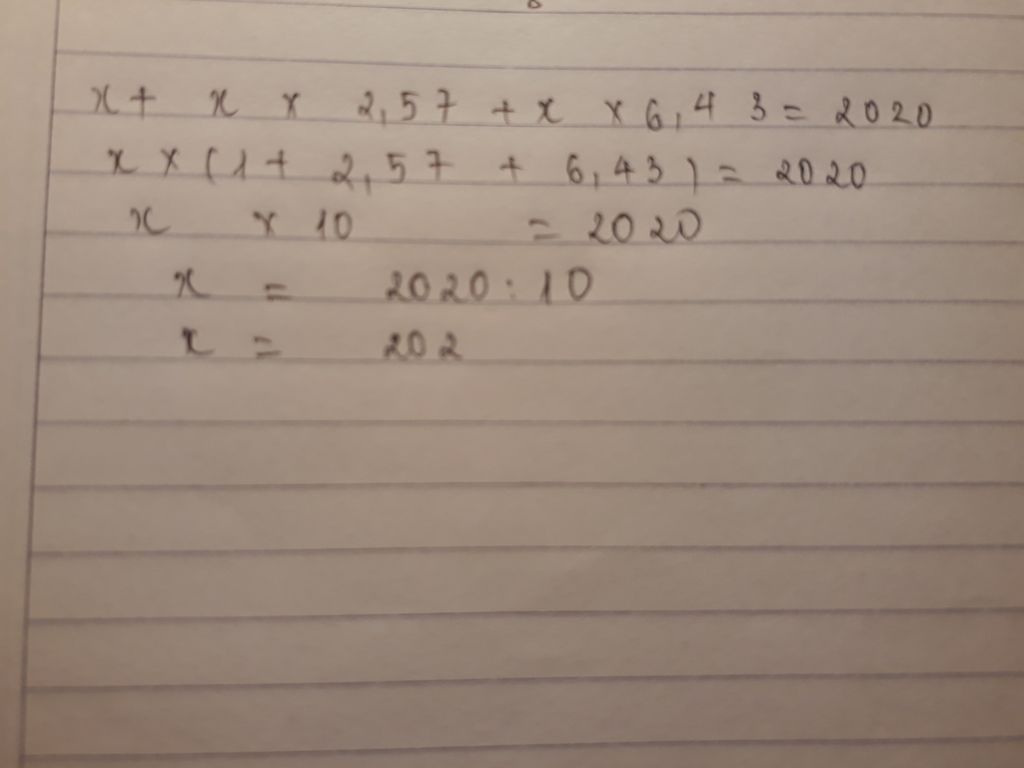 x + x × 2,57 + x × 6,43 = 2020
x × (1 + 2,57 + 6,43) = 2020
x × 10 = 2020
x = 2020 : 10
x = 202